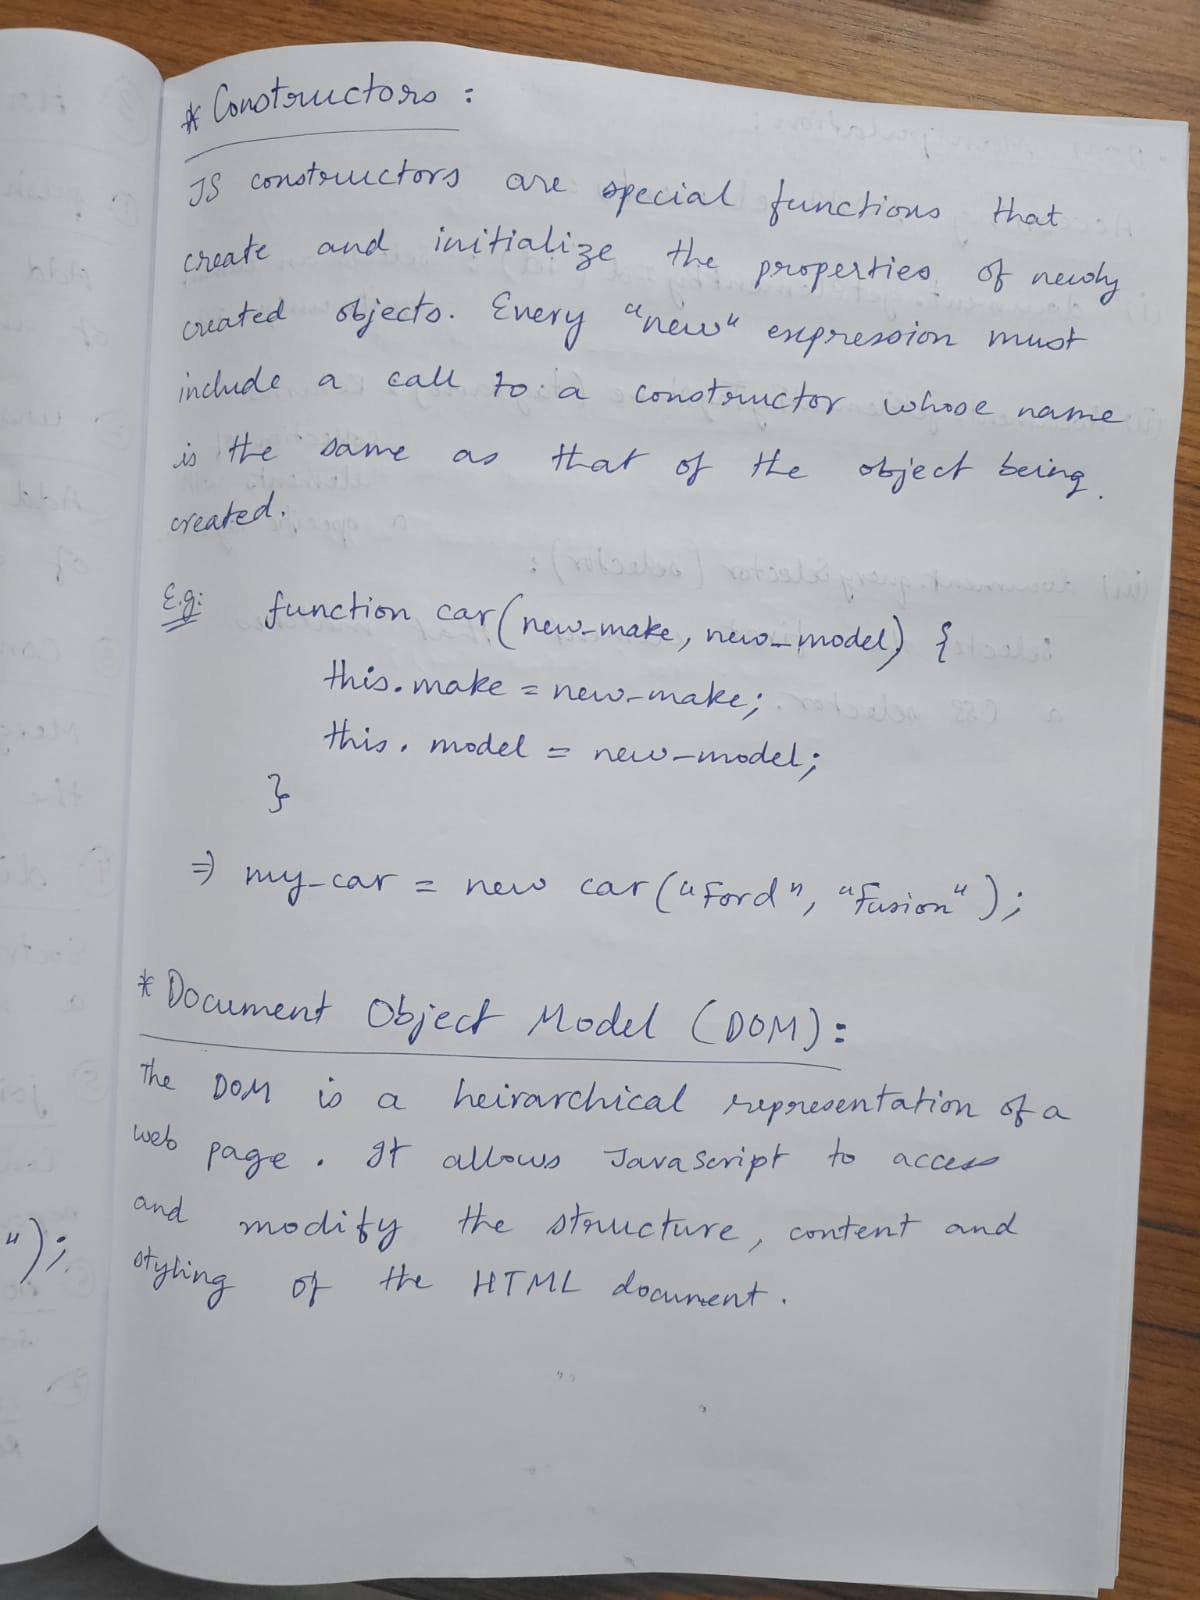 * Constructors :
JS constructors are special functions that
create and initialize the properties of newly
created objects. Every "new" expression must
include a call to a constructor whose name
is the same as that of the object being
created.
E.g: function car(new_make, new_model) {
this.make = new_make;
this.model = new_model;
}
⇒ my_car = new car("Ford", "Fusion");
* Document Object Model (DOM):
The DOM is a heirarchical representation of a
web page. It allows JavaScript to access
and modify the structure, content and
styling of the HTML document.
");